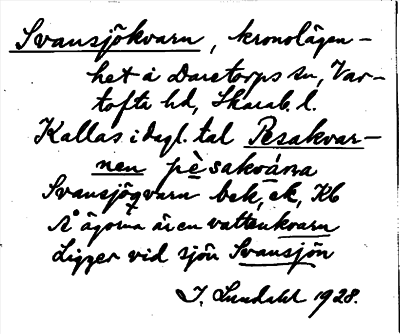 Svansjökvarn, kronolägen-
het å Daretorps sn, Var-
tofta hd, Skarab. l.
Kallas i dagl. tal Pesakvar-
nen pèsakvána
Svansjöqvarn bek, ek, Kb
Å ägorna är en vattenkvarn
Ligger vid sjön Svansjön
I. Lundahl 1928.